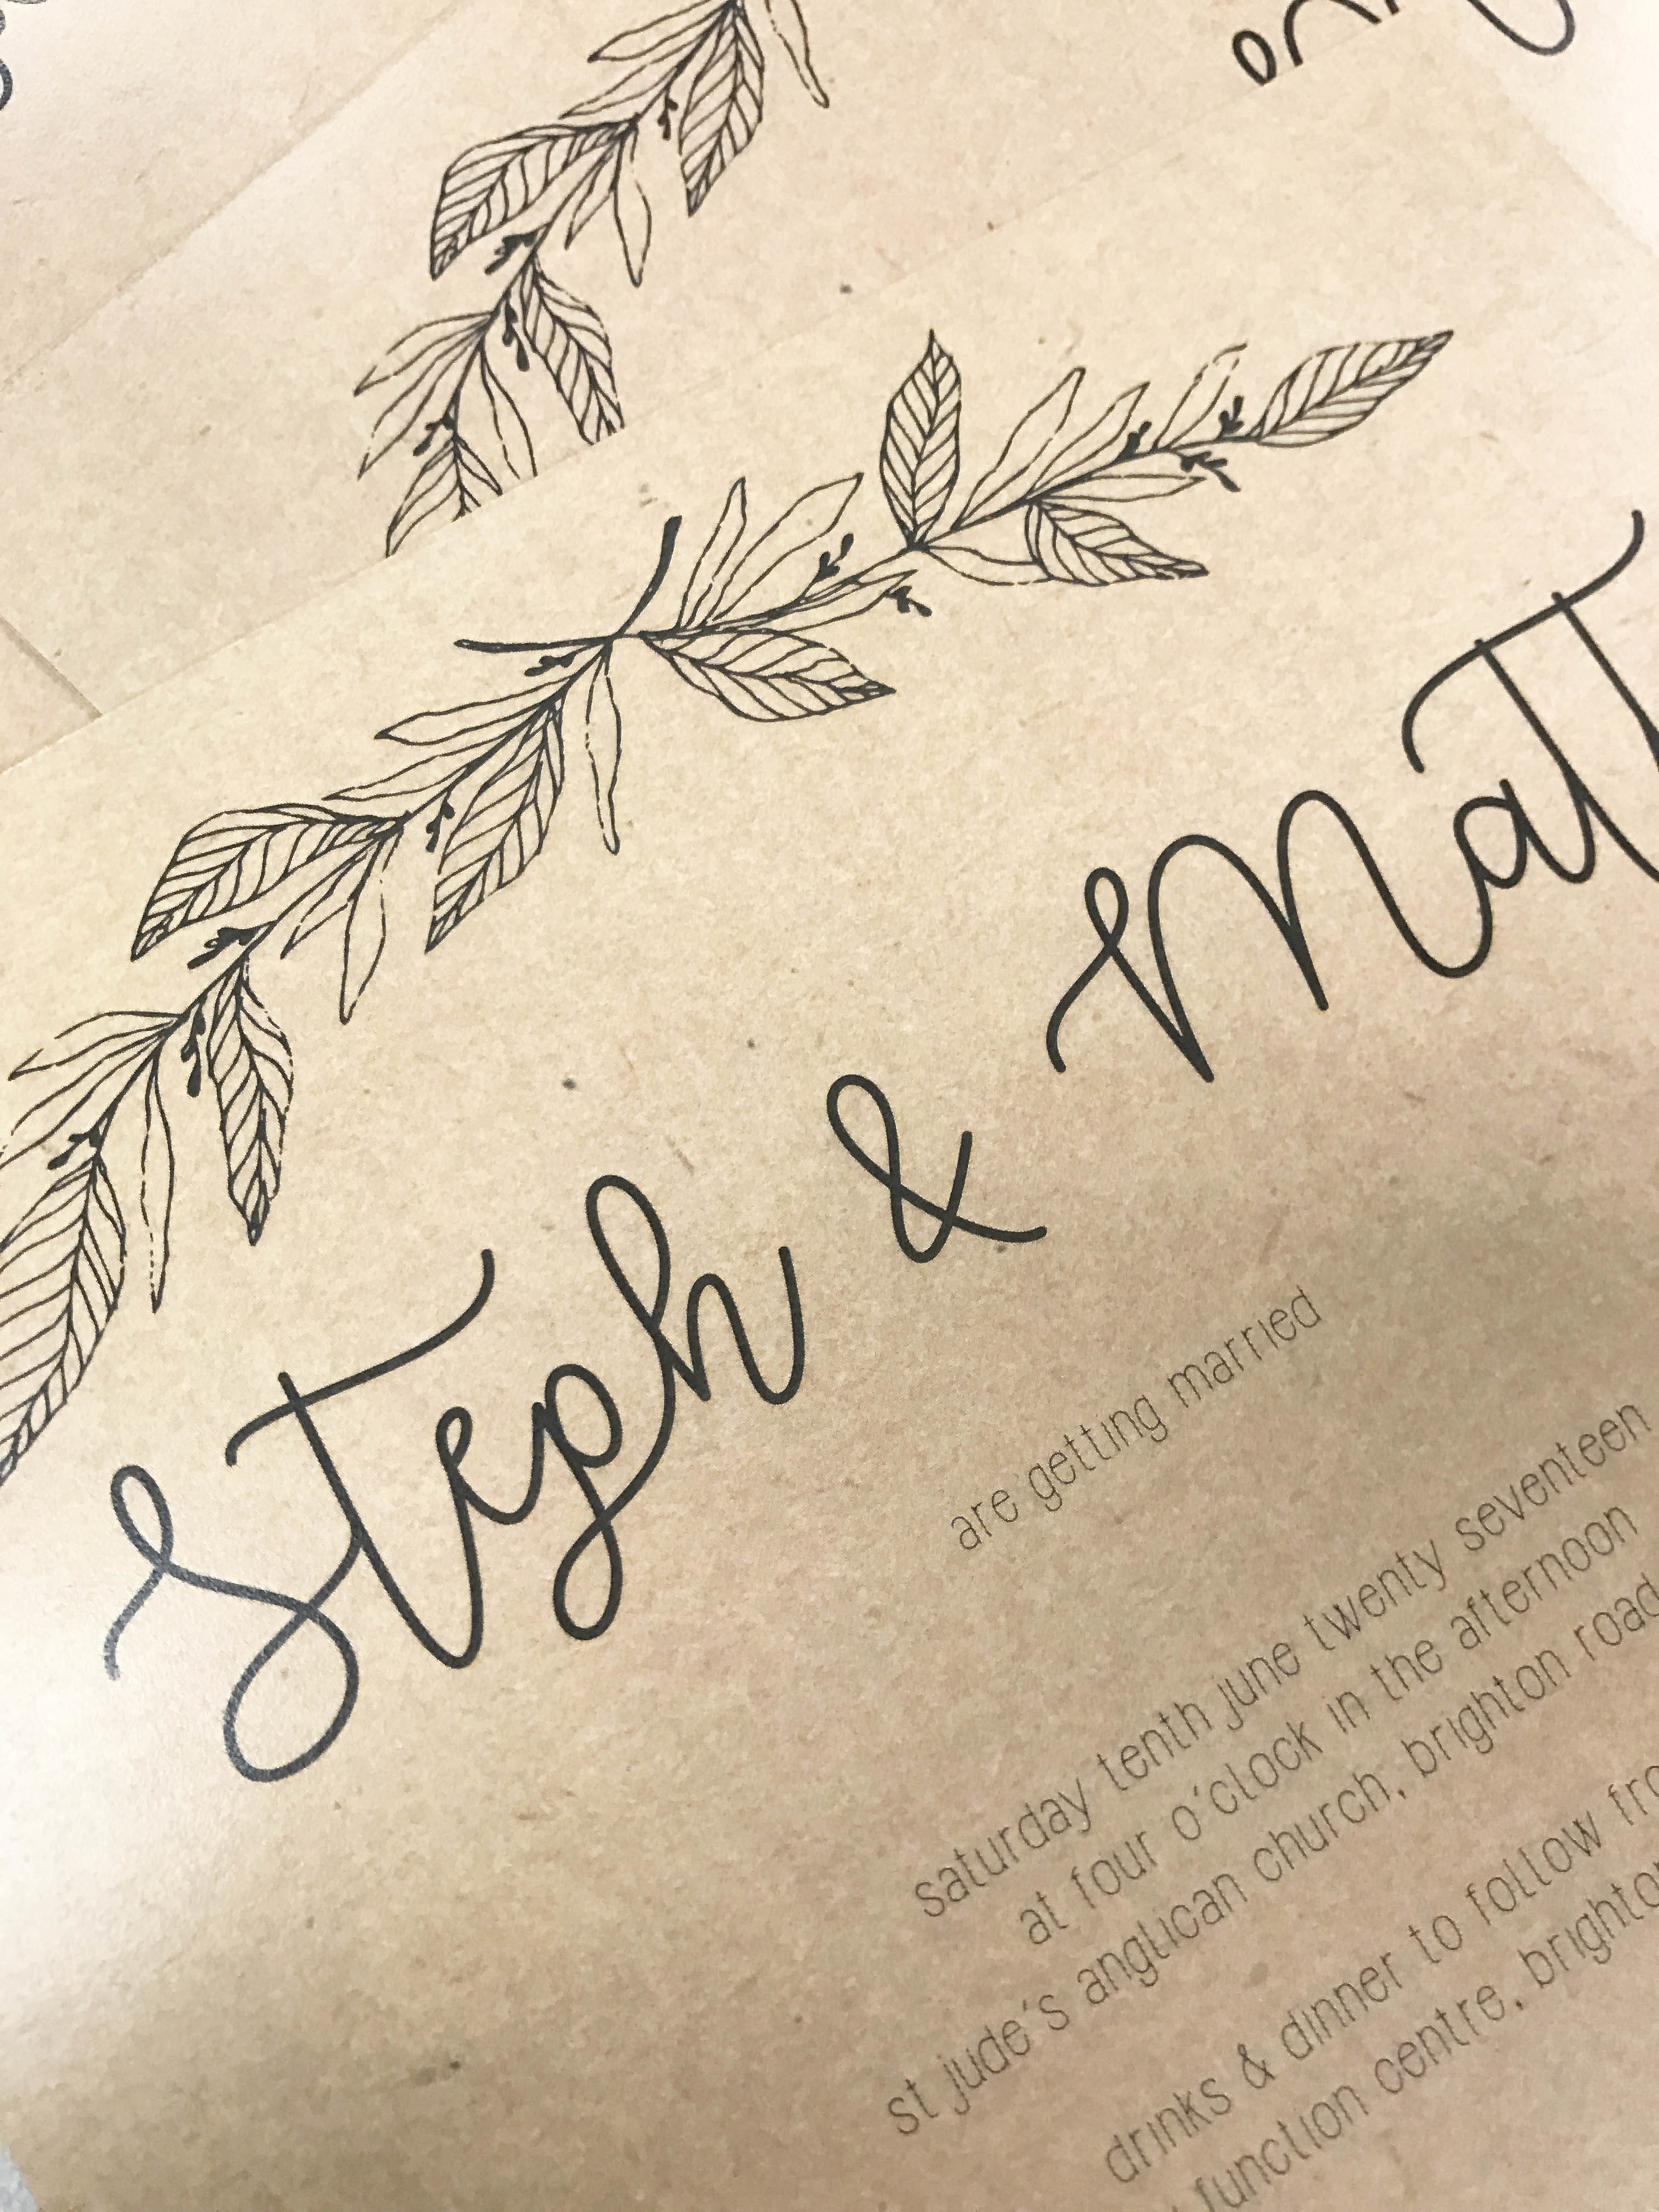 Steph & Matt
are getting married
saturday tenth june twenty seventeen
at four o'clock in the afternoon
st jude's anglican church, brighton road
drinks & dinner to follow
function centre,